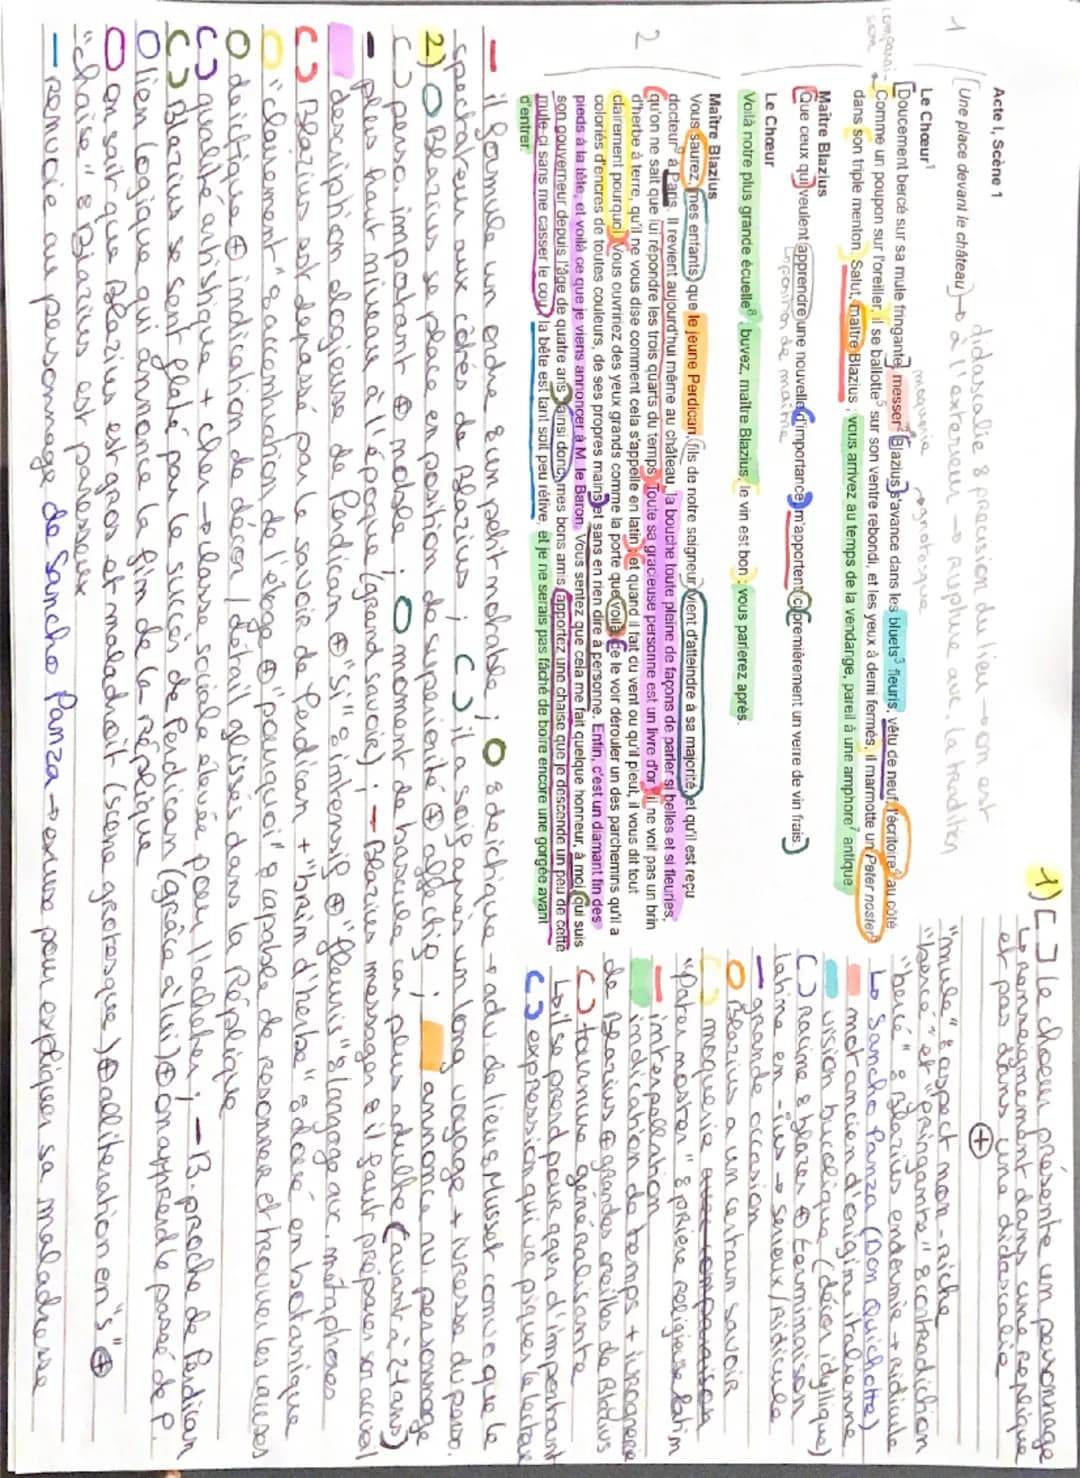 Acte I, Scène 1
(Une place devant le château) → didascalie : précision du lieu → on est
à l'extérieur → rupture avec la tradition
1
Le Chœur¹
Doucement bercé sur sa mule fringante, messer² Blazius s'avance dans les bluets³ fleuris, vêtu de neuf, l'écritoire⁴ au côté.
Comme un poupon sur l'oreiller, il se ballotte⁵ sur son ventre rebondi, et les yeux à demi fermés, il marmotte un Pater noster⁶
dans son triple menton. Salut, maître Blazius ; vous arrivez au temps de la vendange, pareil à une amphore⁷ antique.
comparai-
son
moquerie
→ grotesque
Maître Blazius
Que ceux qui veulent apprendre une nouvelle d'importance m'apportent ici premièrement un verre de vin frais.
position de maître
Le Chœur
Voilà notre plus grande écuelle⁸ ; buvez, maître Blazius ; le vin est bon ; vous parlerez après.
2
Maître Blazius
Vous saurez, mes enfants, que le jeune Perdican, fils de notre seigneur, vient d'atteindre à sa majorité, et qu'il est reçu
docteur⁹ à Paris. Il revient aujourd'hui même au château, la bouche toute pleine de façons de parler si belles et si fleuries,
qu'on ne sait que lui répondre les trois quarts du temps. Toute sa gracieuse personne est un livre d'or ; il ne voit pas un brin
d'herbe à terre, qu'il ne vous dise comment cela s'appelle en latin ; et quand il fait du vent ou qu'il pleut, il vous dit tout
clairement pourquoi. Vous ouvririez des yeux grands comme la porte que voilà de le voir dérouler un des parchemins qu'il a
coloriés d'encres de toutes couleurs, de ses propres mains et sans en rien dire à personne. Enfin, c'est un diamant fin des
pieds à la tête, et voilà ce que je viens annoncer à M. le Baron. Vous sentez que cela me fait quelque honneur, à moi, qui suis
son gouverneur depuis l'âge de quatre ans ; ainsi donc, mes bons amis, apportez une chaise que je descende un peu de cette
mule-ci sans me casser le cou ; la bête est tant soit peu rétive, et je ne serais pas fâché de boire encore une gorgée avant
d'entrer.
1) [ ] le choeur présente un personnage
↳ renseignement dans une réplique
et pas dans une didascalie
⊕
"mule" : aspect non-riche
"bercé" et "fringante" : contradiction
"bercé" : Blazius endormie → ridicule
↳ Sancho Panza (Don Quichotte)
mot ancien d'origine italienne
vision bucolique (décor idyllique)
racine : blazer ⊕ terminaison
latine en -ius → sérieux/ridicule
grande occasion
Blazius a un certain savoir
moquerie
"Pater noster" : prière religieuse latin
interpellation
indication de temps + ivrognerie
de Blazius ⊕ grandes oreilles de Blazius
tournure généralisante
↳ il se prend pour qqun d'important
expression qui va piquer le lecteur
— il formule un ordre : un petit notable ; O : déictique → adv. de lieu : Musset convoque le
spectateur aux côtés de Blazius ; il a soif après un long voyage + ivresse du perso.
2) O Blazius se place en position de supériorité ⊕ affectif ; annonce nv. personnage
perso important ⊕ noble ; O moment de bascule car peus adulte (avant à 21 ans)
— plus haut niveau à l'époque (grand savoir) ; — Blazius messager : il faut préparer son arrivé
description élogieuse de Perdican ⊕ "si" : intensif ⊕ "fleuris" : langage aux métaphores
Blazius est dépassé par le savoir de Perdican + "brin d'herbe" : doué en botanique
O "clairement" : accumulation de l'éloge ⊕ "pourquoi" : capable de raisonner et trouver les causes
O déictique ⊕ indication de décor / détail glissés dans la réplique
qualité artistique + cher → classe sociale élevée pour l'acheter ; — B. proche de Perdican
Blazius se sent flatté par le succès de Perdican (grâce à lui) ⊕ on apprend le passé de P.
O lien logique qui annonce la fin de la réplique
O on sait que Blazius est gros et maladroit (scène grotesque) ⊕ allitération en "s" ⊕
"chaise" : Blazius est paresseux
— renvoie au personnage de Sancho Panza → excuse pour expliquer sa maladresse